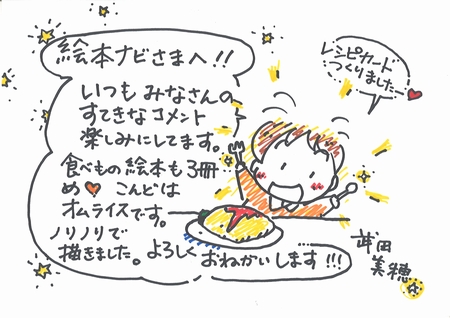 絵本ナビさまへ!!
いつも みなさんの
すてきなコメント
楽しみにしてます。
食べもの 絵本も 3冊
め♥ こんどは
オムライスです。
ノリノリで
描きました。よろしく
おねがいします!!!
レシピカード
つくりました…♥
武田
美穂